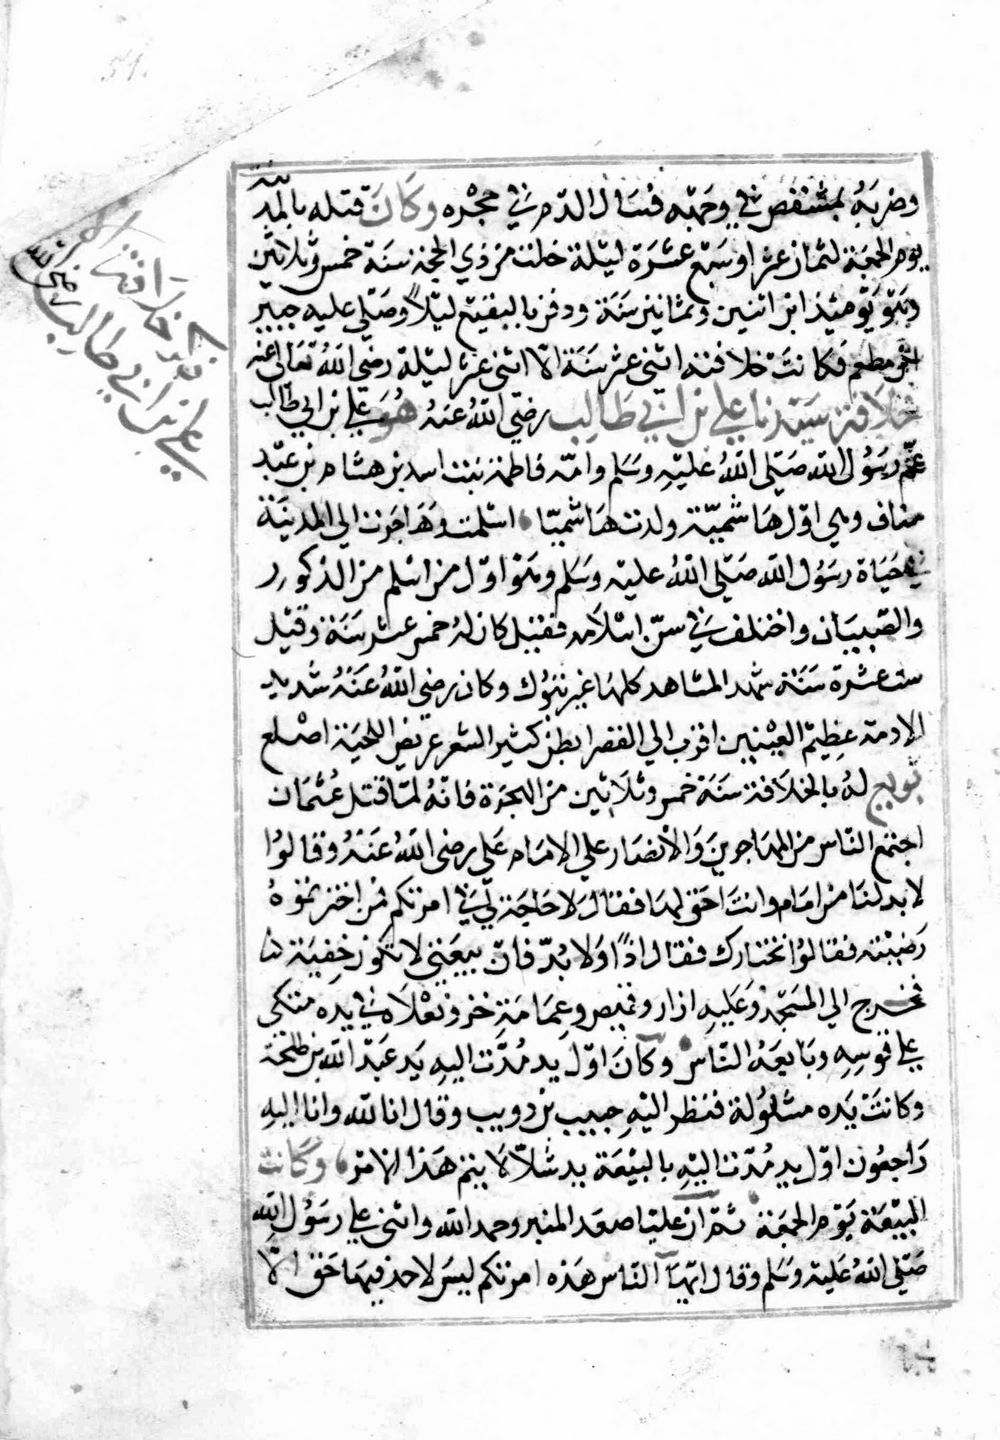 وضربه بمشقص في وجهه فسال الدم في حجره وكان قتله بالمدينة
يوم الجمعة لثمان عشر او سبع عشرة ليلة خلت من ذي الحجة سنة خمس وثلاثين
وهو يوميذ ابن اثنين وثمانين سنة ودفن بالبقيع ليلا وصلي عليه جبير
ابن مطعم فكانت خلافته اثنى عشر سنة الا اثنى عشر ليلة رضي الله تعالى عنه
خلافة سيدنا علي بن ابي طالب رضي الله عنه هو علي بن ابي طالب
عم رسول الله صلى الله عليه وسلم وامه فاطمة بنت اسد بن هشام بن عبد
مناف وهي اول هاشمية ولدت هاشميا اسلمت وهاجرت الي المدينة
في حياة رسول الله صلى الله عليه وسلم وهو اول من اسلم من الذكور
والصبيان واختلف في سن اسلامه فقيل كان له خمس عشر سنة وقيل
ست عشرة سنة شهد المشاهد كلها غير تبوك وكان رضي الله عنه شديد
الادمة عظيم العينين اقرب الي القصر ابطن كثير الشعر عريض اللحية اصلع
بويع له بالخلافة سنة خمس وثلاثين من الهجرة فانه لما قتل عثمان
اجتمع الناس من المهاجرين والانصار علي الامام علي رضى الله عنه وقالوا
لا بد لنا من امام وانت احق لها فقال لا حاجة لي في امرتكم من اخترتموه
رضيته فقالوا نختارك فقال اذا ولا بد فان بيعتي لا تكون خفية
فخرج الي المسجد وعليه ازار وقميص وعمامة خز ونعلاه في يده متكى
علي قوسه وبايعه الناس وكان اول يد مدت اليه يد عبد الله بن طلحة
وكانت يده مشلولة فنظر اليه حبيب بن دويب وقال انا لله وانا اليه
راجعون اول يد مدت اليه بالبيعة يد شلا لا يتم هذا الامر وكانت
البيعة يوم الجمعة ثم ان عليا صعد المنبر وحمد الله واثنى علي رسول الله
صلى الله عليه وسلم وقال ايها الناس هذه امرتكم ليس لاحد فيها حق الا
علي بن ابي طالب